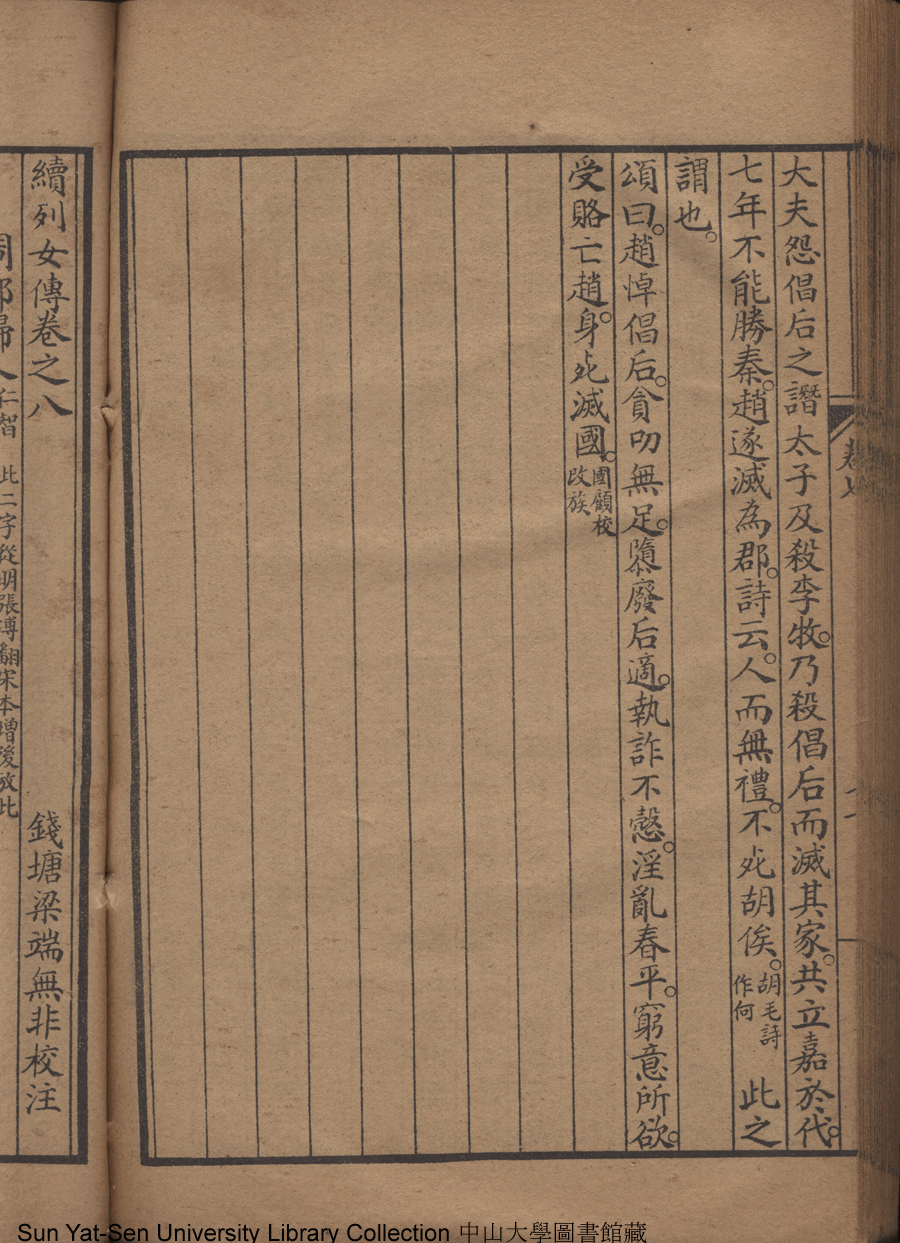 大夫怨倡后之譖太子及殺李牧。乃殺倡后而滅其家。共立嘉於代。
七年不能勝秦。趙遂滅為郡。詩云。人而無禮。不死胡俟。胡毛詩作何此之
謂也。
頌曰。趙悼倡后。貪叨無足。隳廢后適。執詐不愨。淫亂春平。窮意所欲。
受賂亡趙。身死滅國。國顧校改族
續列女傳卷之八
錢塘梁端無非校注
仁智 此二字從明張溥翻宋本增後放此
卷七
Sun Yat-Sen University Library Collection 中山大學圖書館藏